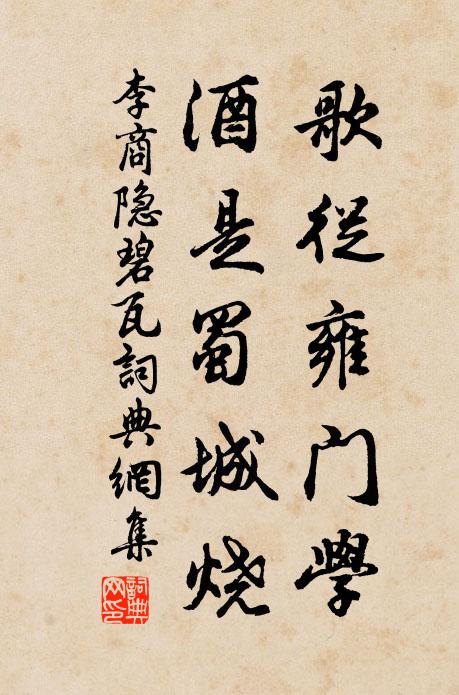 歌從雍门學
酒是蜀城烧
李商隐碧瓦詞典網集
詞典网印